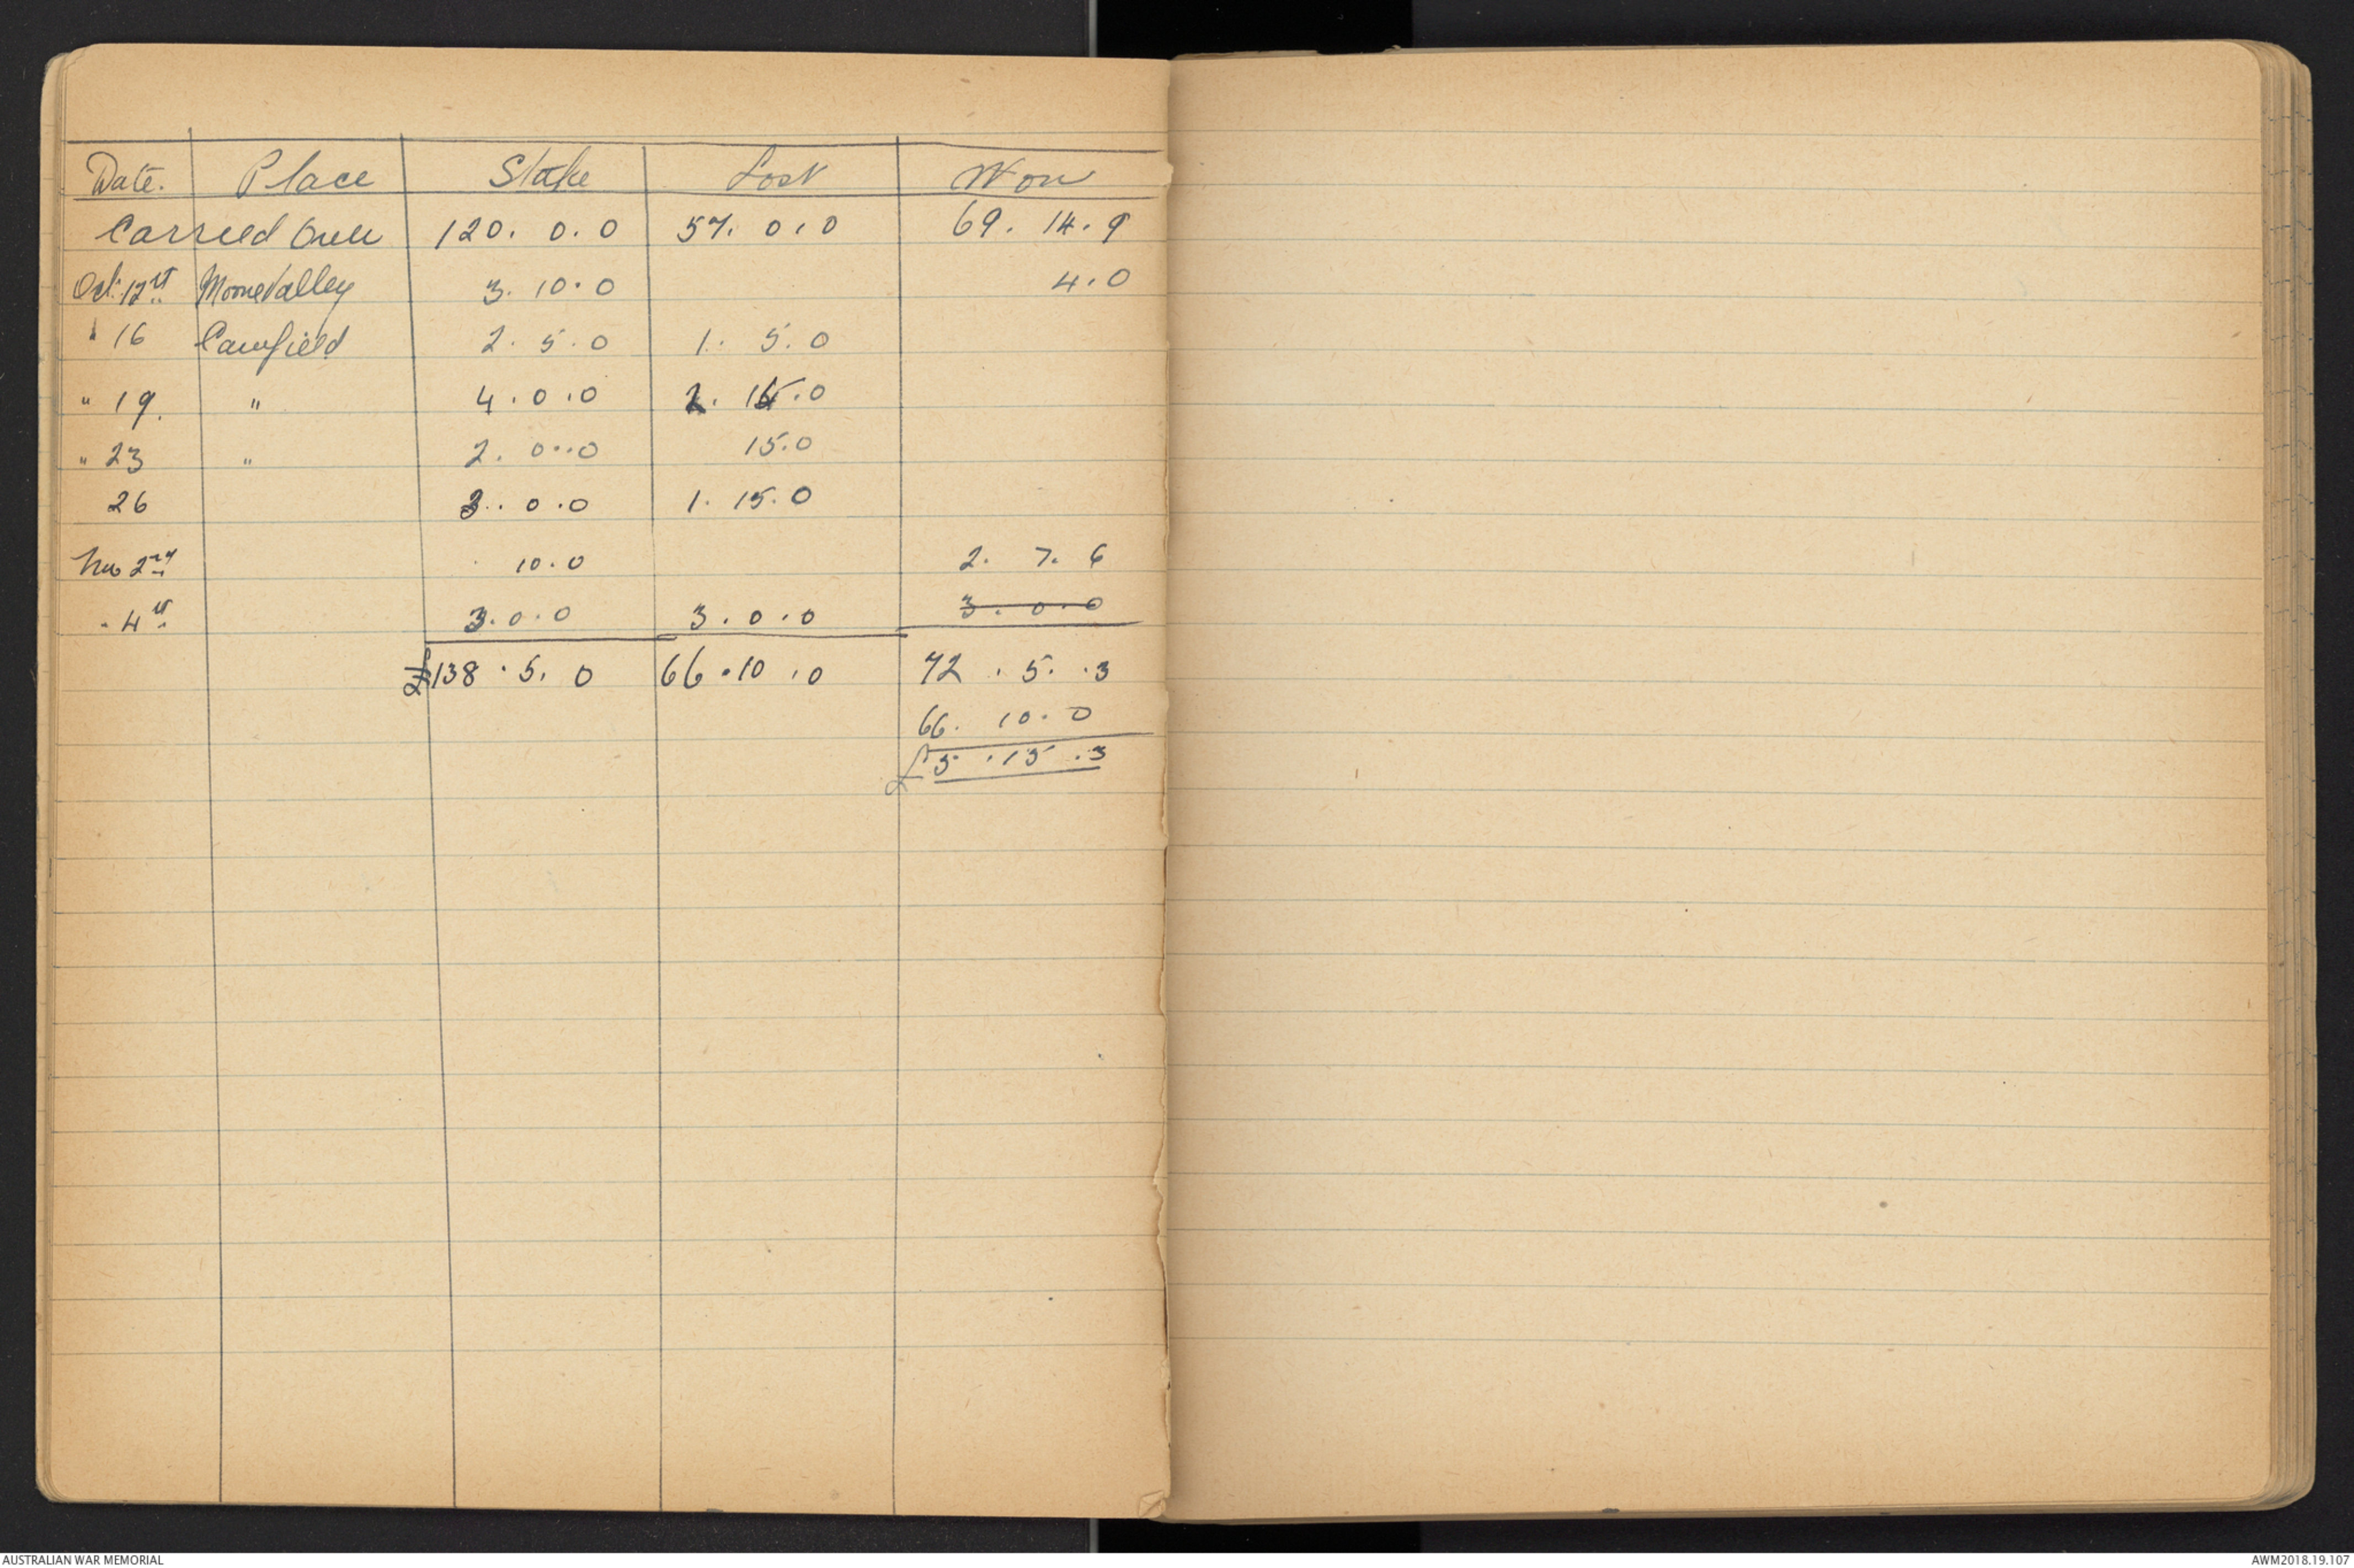 Date. Place Stake Lost Won
Carried Over 120. 0. 0 57. 0. 0 69. 14. 9
Oct. 12st MooneValley 3. 10. 0 4. 0
" 16 Caulfield 2. 5. 0 1. 5. 0
" 19. " 4. 0. 0 2. 15. 0
" 23 " 2. 0. 0 15. 0
26 3. 0. 0 1. 15. 0
Nov 2nd 10. 0 2. 7. 6
" 4st 3. 0. 0 3. 0. 0 3. 0. 0
£138. 5. 0 66. 10. 0 72. 5. 3
66. 10. 0
£5. 15. 3
AUSTRALIAN WAR MEMORIAL AWM2018.19.107